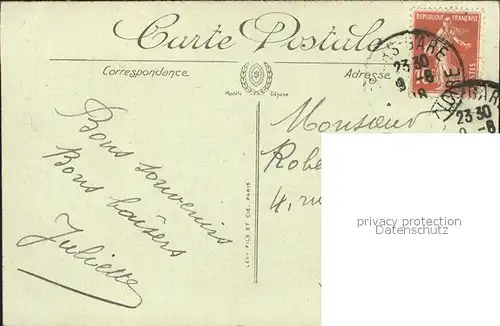 RÉPUBLIQUE FRANÇAISE
Carte Postale
GARE
23 30
9 -8
LOIRE
GARE
23 30
-8
Correspondance
Adresse
Modèle Déposé
Monsieur
Robe
4, ru
Bons souvenirs
Bons baisers
Juliette
LÉVY FILS ET CIE, PARIS
privacy protection
Datenschutz